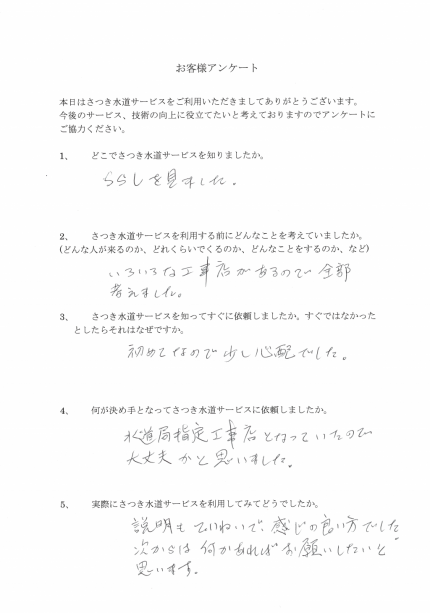 お客様アンケート
本日はさつき水道サービスをご利用いただきましてありがとうございます。
今後のサービス、技術の向上に役立てたいと考えておりますのでアンケートに
ご協力ください。
1、 どこでさつき水道サービスを知りましたか。
ちらしを見ました。
2、 さつき水道サービスを利用する前にどんなことを考えていましたか。
(どんな人が来るのか、どれくらいでくるのか、どんなことをするのか、など)
いろいろな工事店があるので全部
考えました。
3、 さつき水道サービスを知ってすぐに依頼しましたか。すぐではなかった
としたらそれはなぜですか。
初めてなので少し心配でした。
4、 何が決め手となってさつき水道サービスに依頼しましたか。
水道局指定工事店となっていたので
大丈夫かと思いました。
5、 実際にさつき水道サービスを利用してみてどうでしたか。
説明もていねいで、感じの良い方でした。
次からは何かあればお願いしたいと
思います。